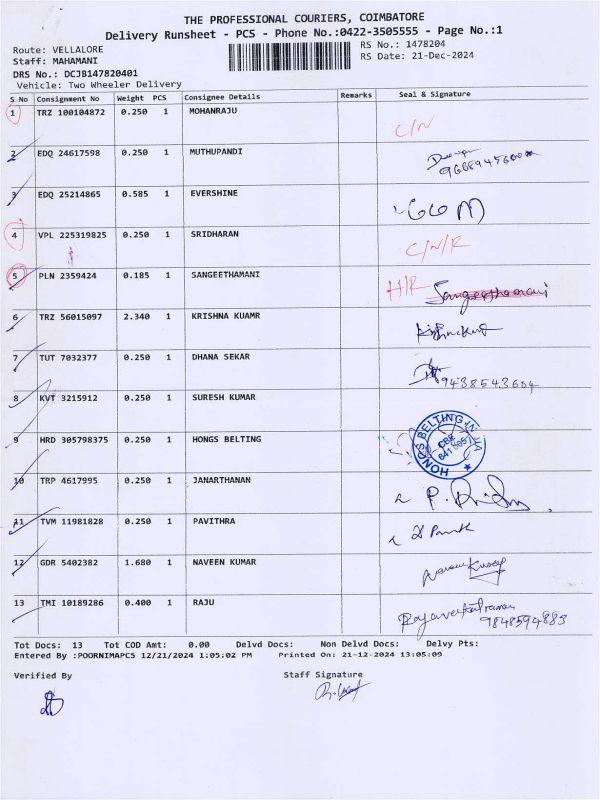 THE PROFESSIONAL COURIERS, COIMBATORE
Delivery Runsheet - PCS - Phone No.:0422-3505555 - Page No.:1
Route: VELLALORE
RS No.: 1478204
Staff: MAHAMANI
RS Date: 21-Dec-2024
DRS No.: DCJB147820401
Vehicle: Two Wheeler Delivery
S No Consignment No Weight PCS Consignee Details Remarks Seal & Signature
1 TRZ 100104872 0.250 1 MOHANRAJU
C/N
2 EDQ 24617598 0.250 1 MUTHUPANDI
3 EDQ 25214865 0.585 1 EVERSHINE
4 VPL 225319825 0.250 1 SRIDHARAN
C/N/R
5 PLN 2359424 0.185 1 SANGEETHAMANI
H/R Sangeethamani
6 TRZ 56015097 2.340 1 KRISHNA KUAMR
7 TUT 7032377 0.250 1 DHANA SEKAR
9438543604
8 KVT 3215912 0.250 1 SURESH KUMAR
9 HRD 305798375 0.250 1 HONGS BELTING
HONGS BELTING INDIA
CBE
10 TRP 4617995 0.250 1 JANARTHANAN
11 TVM 11981828 0.250 1 PAVITHRA
12 GDR 5402382 1.680 1 NAVEEN KUMAR
13 TMI 10189286 0.400 1 RAJU
9848594883
Tot Docs: 13 Tot COD Amt: 0.00 Delvd Docs: Non Delvd Docs: Delvy Pts:
Entered By :POORNIMAPCS 12/21/2024 1:05:02 PM Printed On: 21-12-2024 13:05:09
Verified By Staff Signature